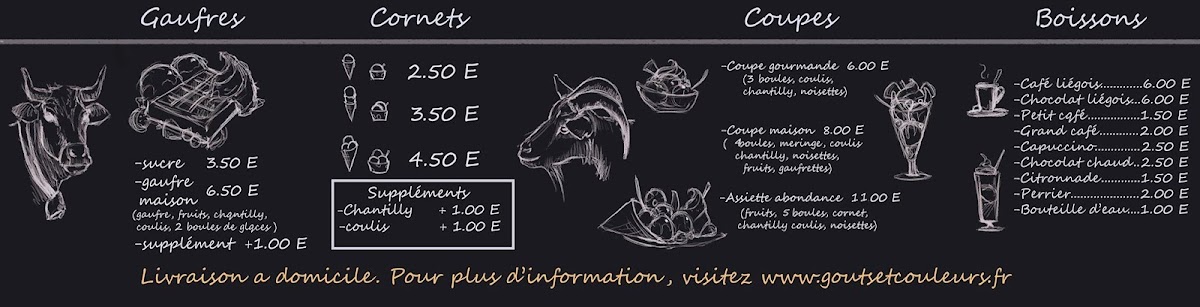 Gaufres
-sucre 3.50 E
-gaufre
maison 6.50 E
(gaufre, fruits, chantilly,
coulis, 2 boules de glaces )
-supplément +1.00 E
Cornets
2.50 E
3.50 E
4.50 E
Suppléments
-Chantilly + 1.00 E
-coulis + 1.00 E
Coupes
-Coupe gourmande 6.00 E
(3 boules, coulis,
chantilly, noisettes)
-Coupe maison 8.00 E
( boules, meringe, coulis
chantilly, noisettes,
fruits, gaufrettes)
-Assiette abondance 11.00 E
(fruits, 5 boules, cornet,
chantilly coulis, noisettes)
Boissons
-Café liégois............6.00 E
-Chocolat liégois...6.00 E
-Petit café................1.50 E
-Grand café............2.00 E
-Capuccino.............2.50 E
-Chocolat chaud..2.50 E
-Citronnade...........1.50 E
-Perrier..................2.00 E
-Bouteille d'eau...1.00 E
Livraison a domicile. Pour plus d'information, visitez www.goutsetcouleurs.fr